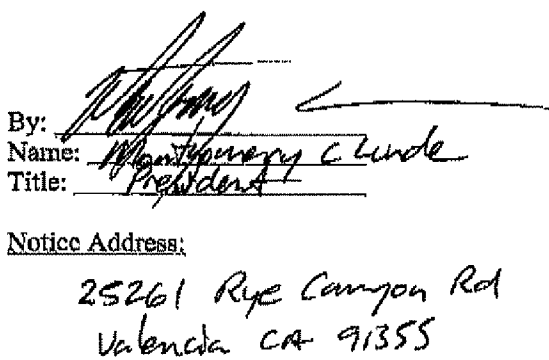 By:
Name: Montgomery C Lunde
Title: President
Notice Address:
25261 Rye Canyon Rd
Valencia CA 91355